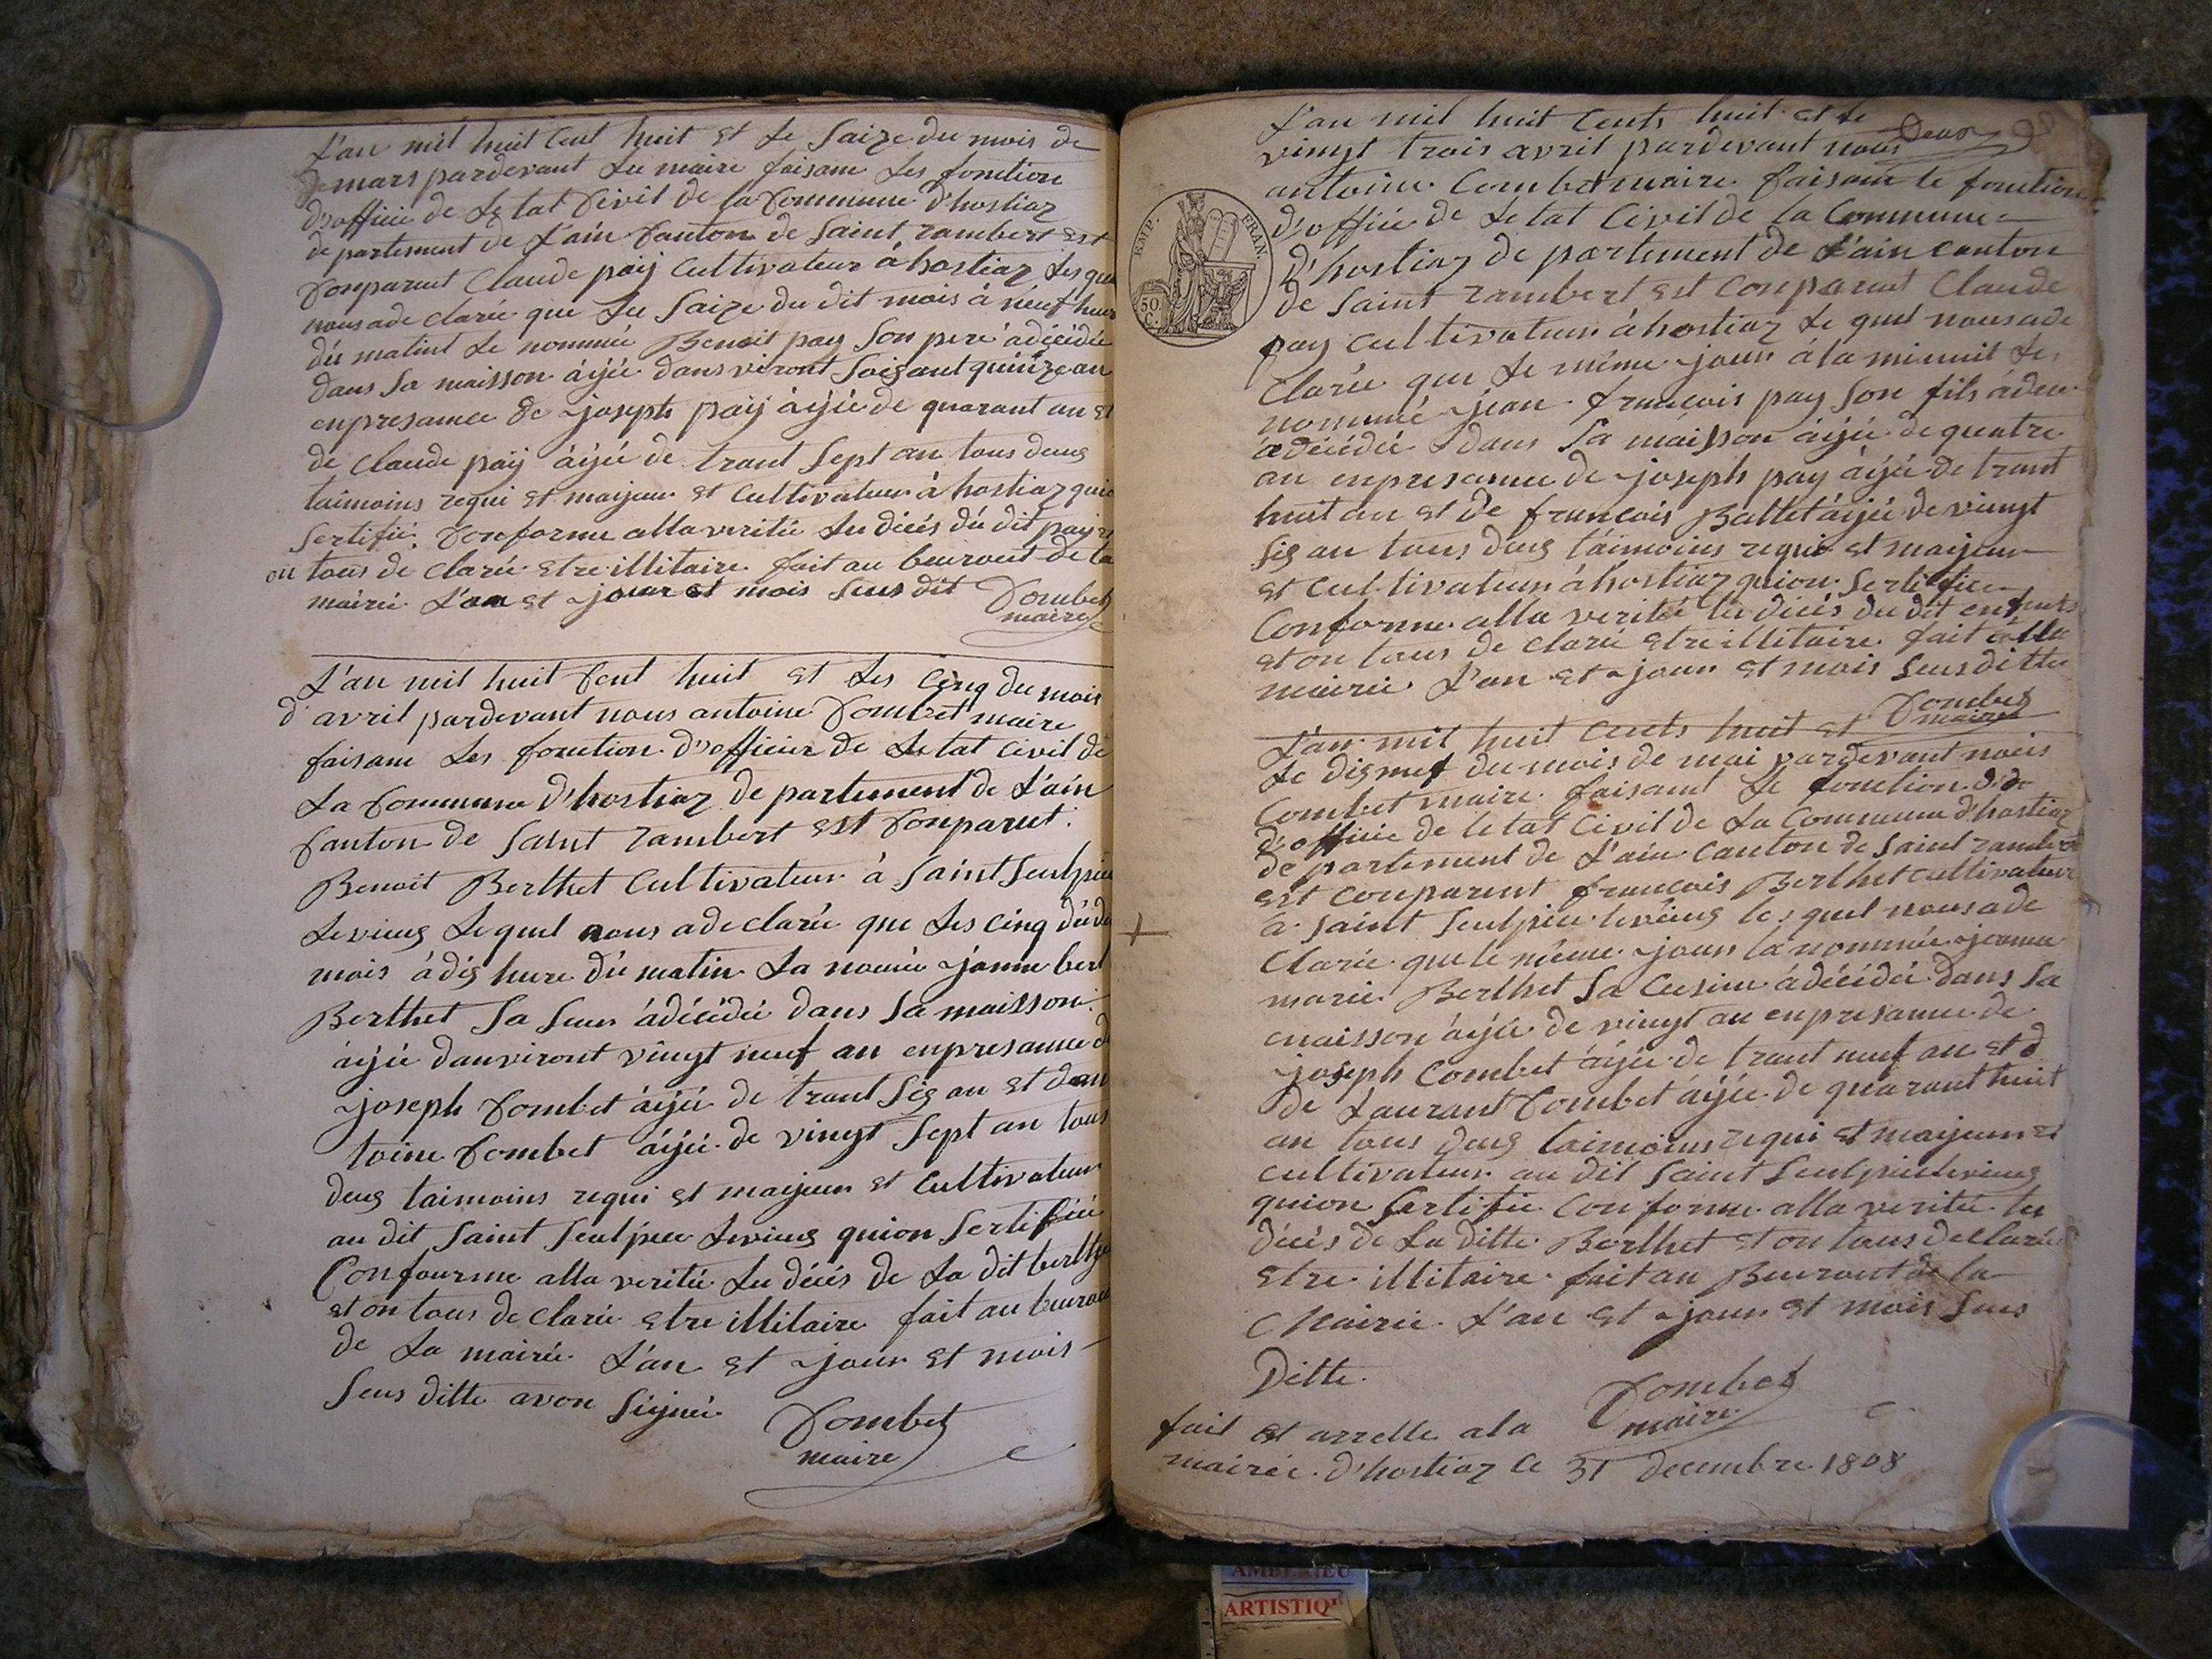 L'an mil huit Cent huit et le Saize du mois de
de mars pardevant du maire faisans les fonction
d'officié de Letat Civil de la Commune d'hostiaz
de partement de L'ain Canton de Saint rambert est
Conparut Claude paij Cultivateur à hostiaz les quel
nous ade clarée que Le Saize du dit mois à neuf heur
du matint Le nommée Benoit pay Son peré àdécédée
dans Sa maisson àijée danviront Soisant quinze an
enpresance de joseph paij àijée de quarant an et
de Claude paij àijée de trant Sept an tous deus
taimoins requi et maijeur et Cultivateur à hostiaz quion
Sertifié Conforme alla verité du décés du dit pay et
on tous de clarée etre illitaire fait au beuraut de la
mairie L'an et jour et mois Sus dit Combet
maire
L'an mil huit Cent huit et Les Cinq du mois
d'avril pardevant nous antoine Combet maire
faisans Les fonction d'officier de Letat Civil de
La Commune d'hostiaz de partement de L'ain
Canton de Saint rambert est Conparut
Benoit Berthet Cultivateur à Saint Seulpice
Levieus Lequel nous ade clarée que Les Cinq du d
mois à dis hure du matin La nomée janne bert
Berthet Sa Seur àdécédée dans Sa maisson
àijée danviront vingt neuf an enpresance d
joseph Combet àijée de trant Sis an et dan
toine Combet àijée de vingt Sept an tous
deus taimoins requi et maijeur et Cultivateur
au dit Saint Seulpice Levieus quion Sertifiée
Confourme alla verité du décés de La dit berthe
et on tous de clarée etre illitaire fait au beurau
de La mairie L'an et jour et mois
Seus ditte avon Signé Combet
maire
L'an mil huit Cents huit et le
Deux
vingt trois avril pardevant nous
antoine Combet maire faisant le fonction
d'offiié de Letat Civil de la Commune
d'hostiaz de partement de L'ain Canton
de Saint rambert est Conparut Claude
pay Cultivateur à hostiaz Le quel nous ade
Clarée que Le même jour à la minuit Le
nommé jean francois pay Son fils
àdécédée dans Sa maisson àijée de quatre
an enpresance de joseph pay àijée de trant
huit an et de francois Ballet àijée de vingt
Sis an tous deus taimoins requi et maijeur
et Cultivateur à hostiaz quion Sertifiee
Conforme alla verité lu décés du dit enfents
et on tous de clarée etre illitaire fait à lla
mairie L'an et jour et mois Seus ditte
Combet
maire
EMP. FRAN.
50 C.
L'an mil huit Cents huit et
Le disneuf du mois de mai pardevant nous
Combet maire faisant Le fonction d
d'officié de letat Civil de La Commune d'hostiaz
de partement de L'ain Canton de Saint rambert
est Conparut francois Berthet Cultivateur
à Saint Seulpice levieus les quel nous ade
Clarée que le même jour la nommée jeanne
marie Berthet Sa Cusine àdécédée dans Sa
maisson àijée de vingt an enpresance de
joseph Combet àijée de trant neuf an et d
de Laurant Combet àijée de quarant huit
an tous deus taimoins requi et maijeur et
Cultivateur au dit Saint Seulpice levieus
quion Sertifié Conforme alla verité lu
décés de La ditte Berthet et on tous de Clarée
etre illitaire fait au Beuraut de la
Mairie L'an et jour et mois Sus
Ditte.
Combet
maire
fait et arrette a la
mairie d'hostiaz le 31 decembre 1808
AMBERIEU
ARTISTIQ